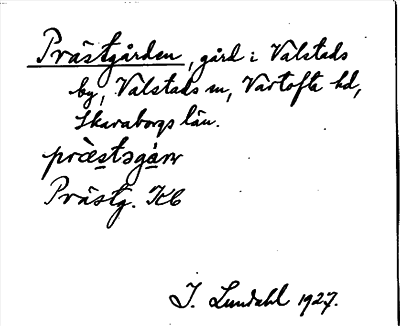 Prästgården, gård i Valstads
by, Valstads sn, Vartofta hd,
Skaraborgs län.
præ̀stəgáṇ
Prästg. KB
I. Lundahl 1927.